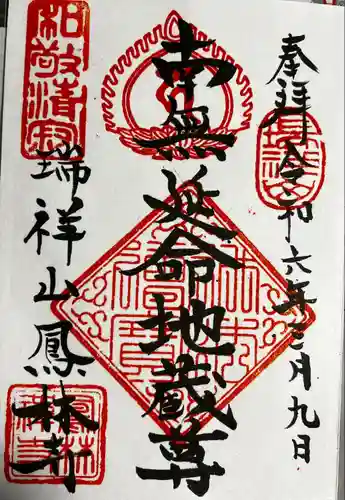 奉拝
令和六年三月九日
南無延命地蔵尊
和敬清寂
瑞祥山鳳林寺